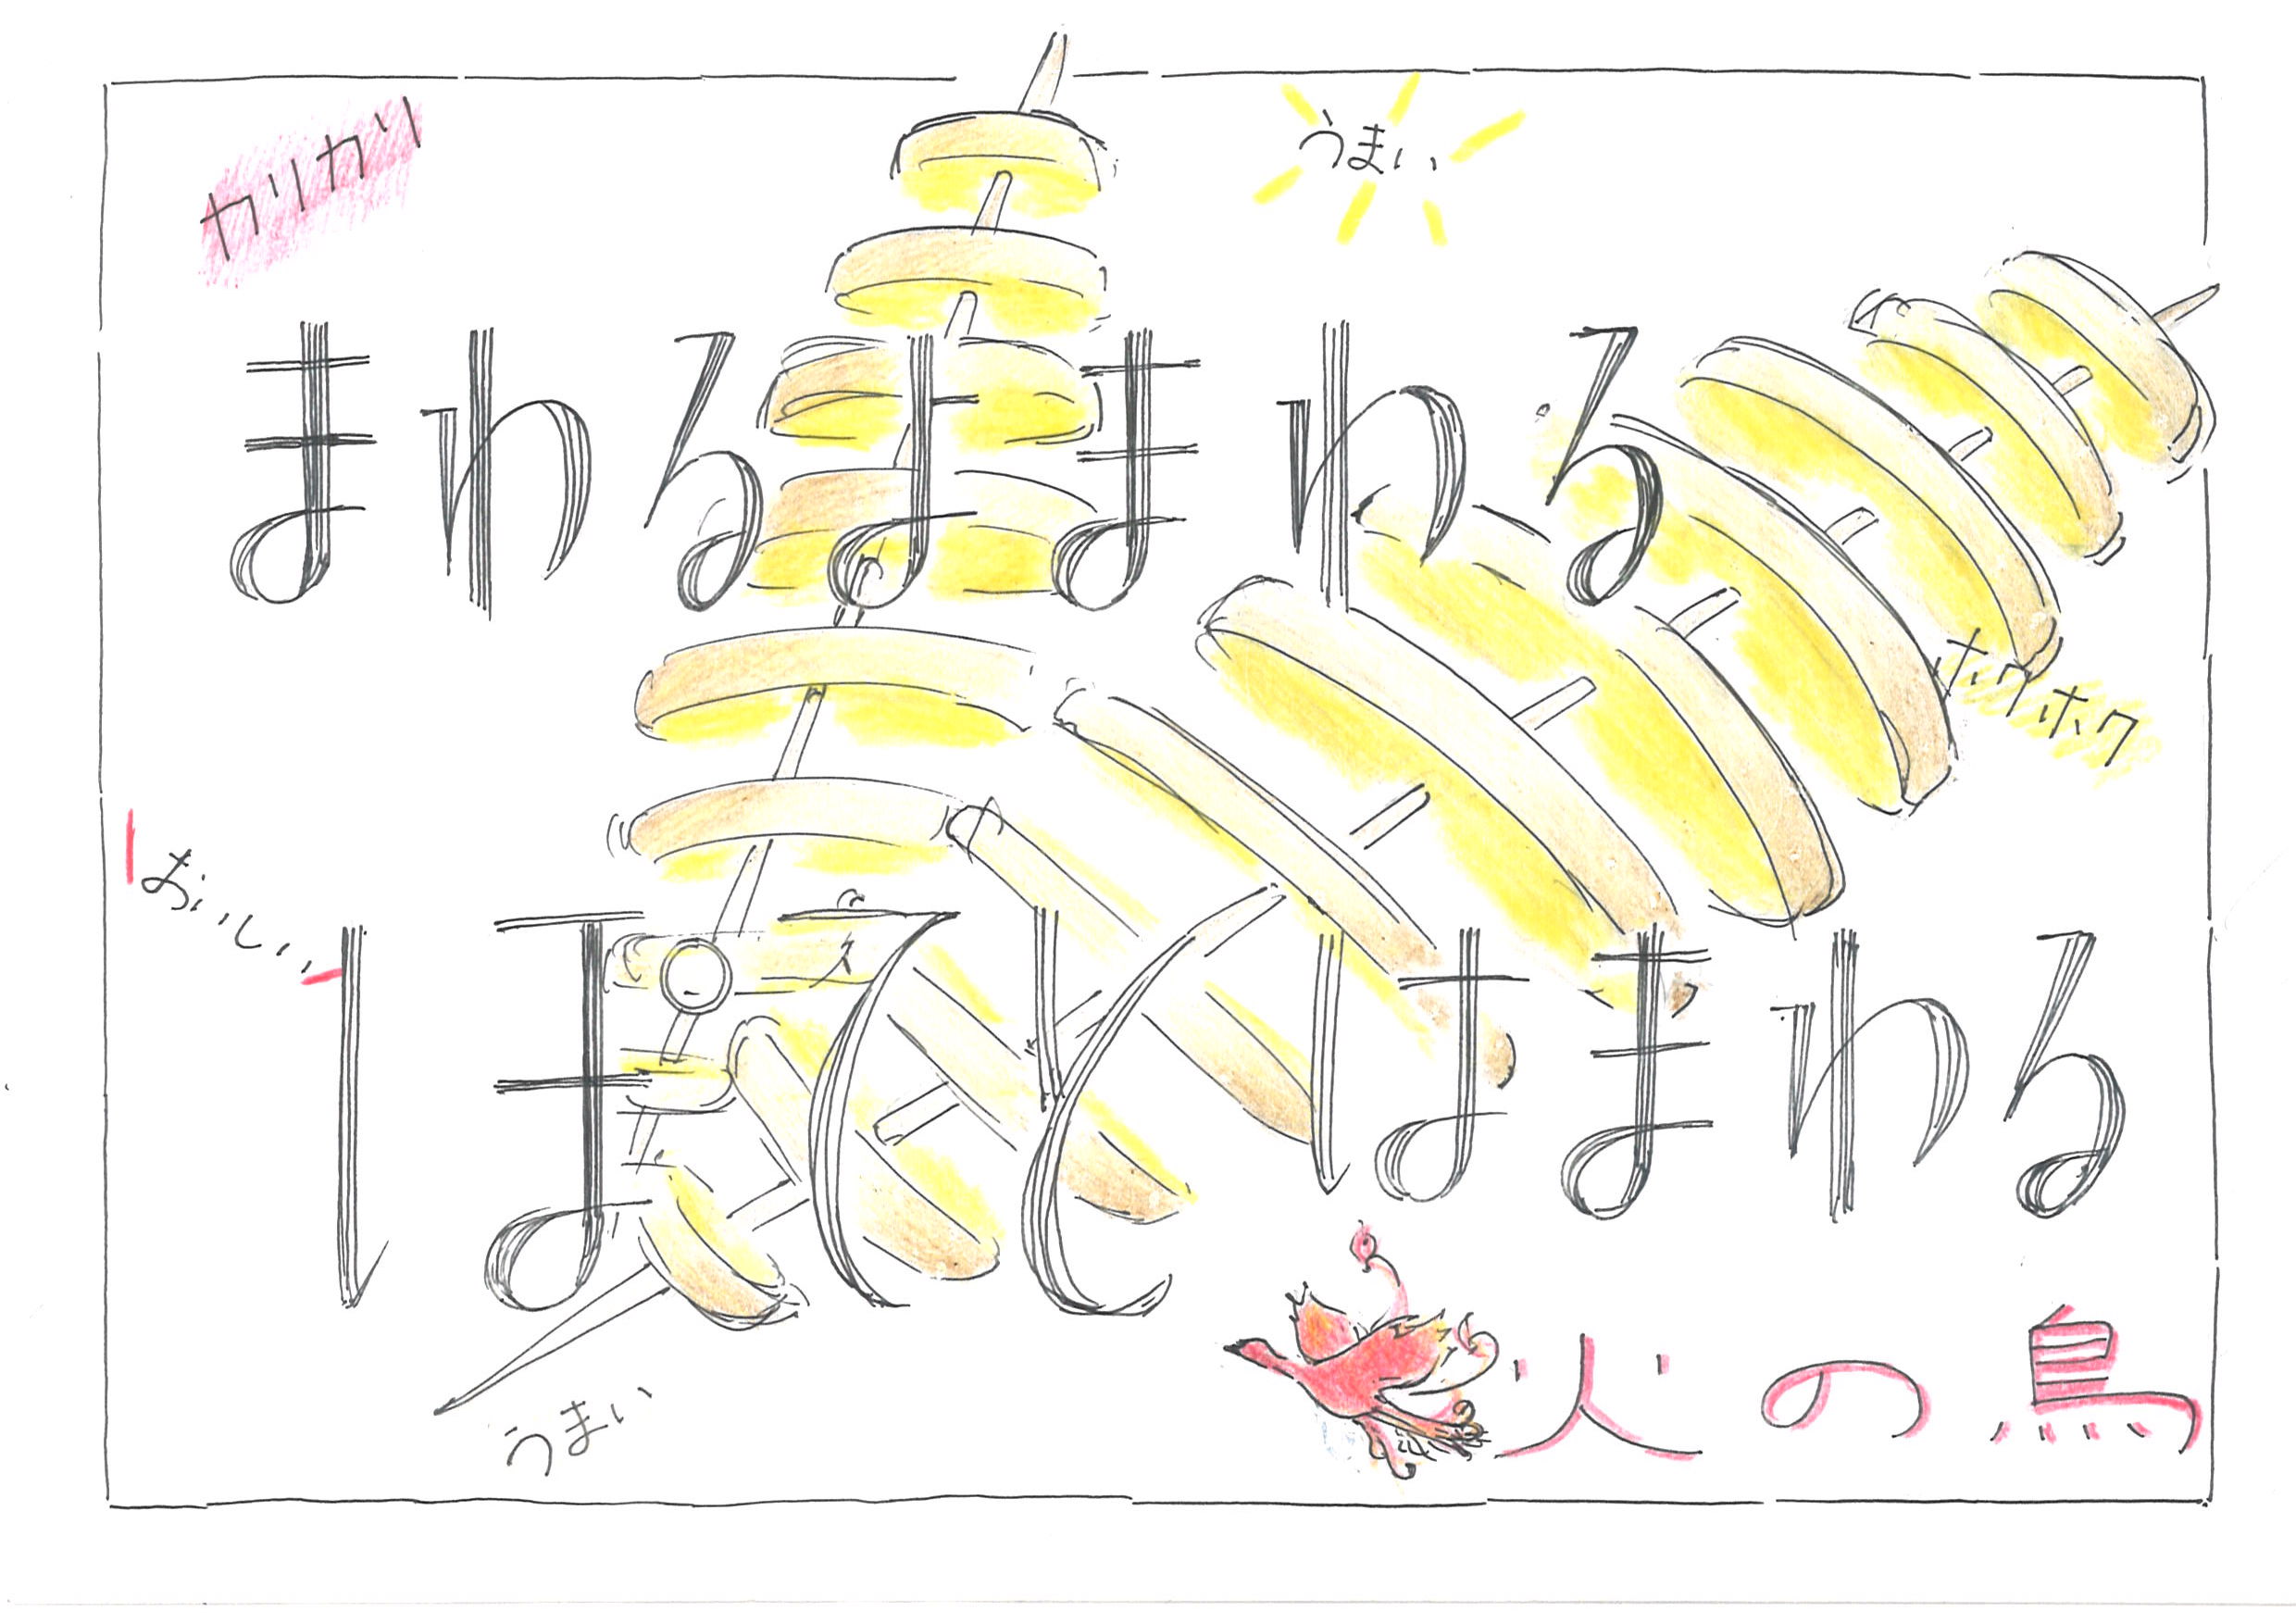 カリカリ
うまい
まわるよまわる
ホクホク
おいしい
ぽてとはまわる
うまい
火の鳥